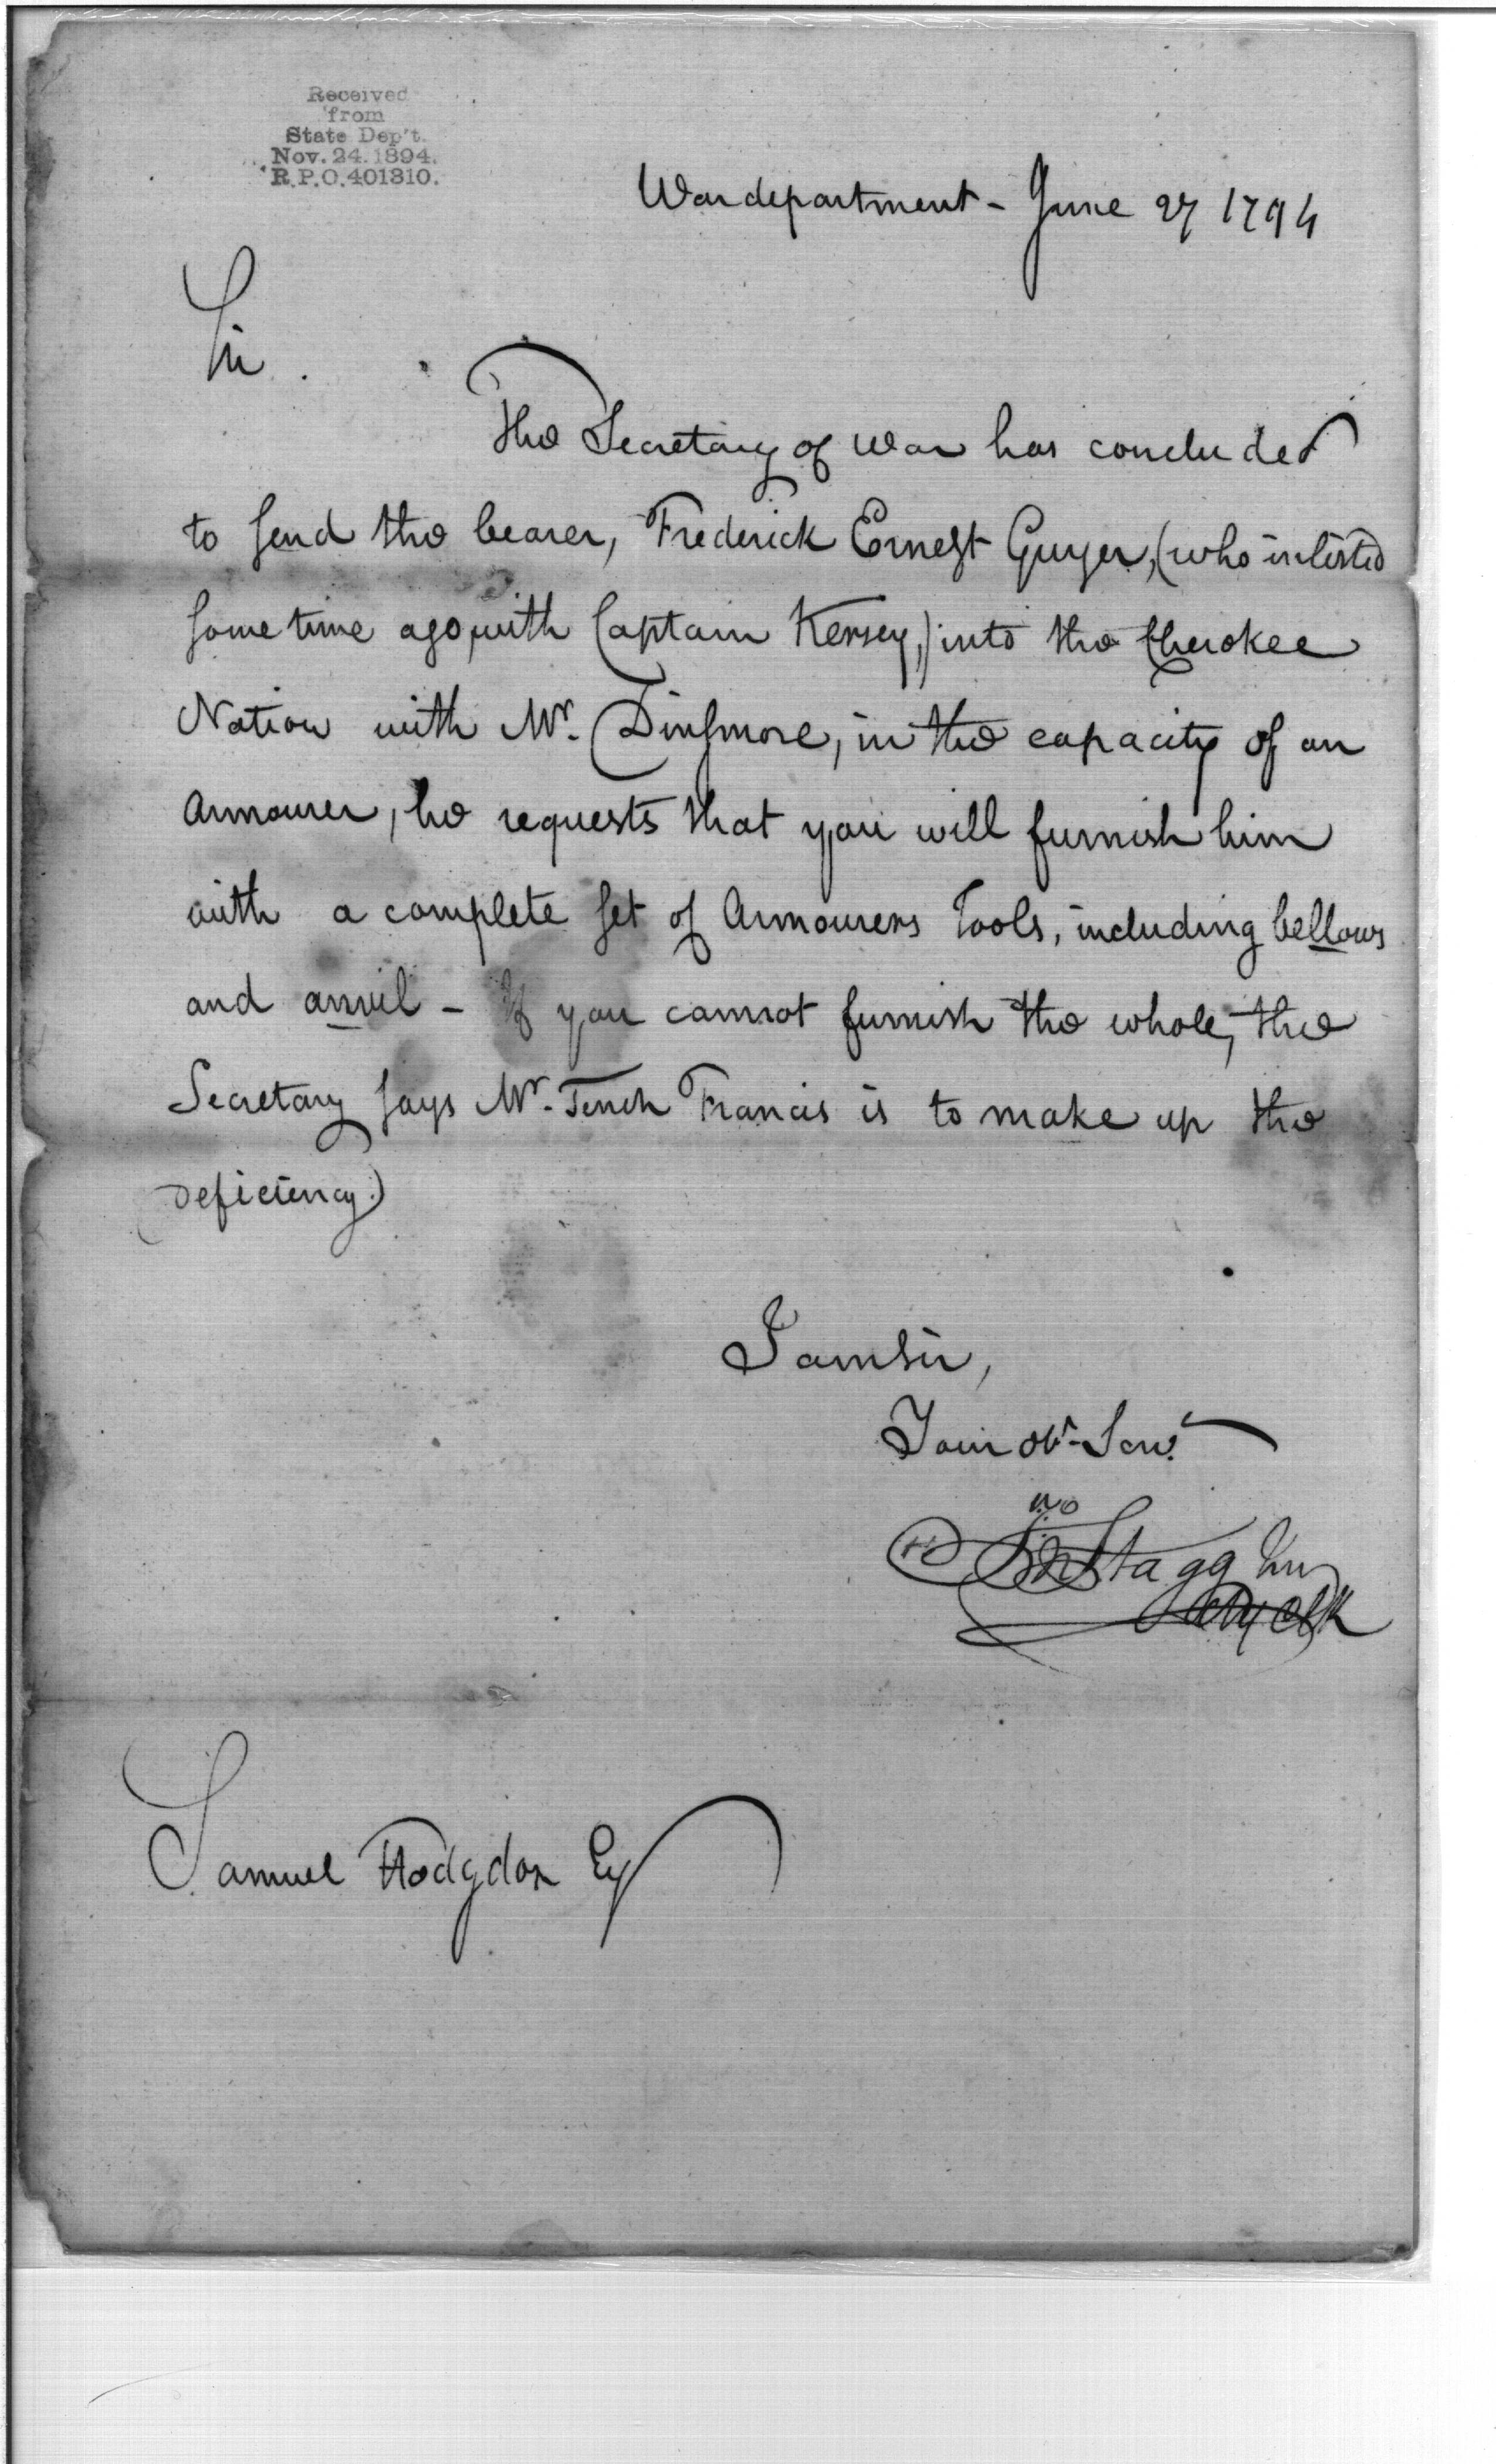 Received
from
State Dep't.
Nov. 24. 1894.
R.P.O. 401310.
War department - June 27 1794
Sir.
The Secretary of War has concluded
to send the bearer, Frederick Ernest Guyer, (who inlisted
some time ago, with Captain Kersey,) into the Cherokee
Nation with Mr. Dinsmore, in the capacity of an
Armourer, he requests that you will furnish him
with a complete set of Armourers Tools, including bellows
and anvil - If you cannot furnish the whole, the
Secretary says Mr. Tench Francis is to make up the
deficiency.)
I am Sir,
Your obt. Servt.
Jno Stagg Junr
Samuel Hodgdon Esq